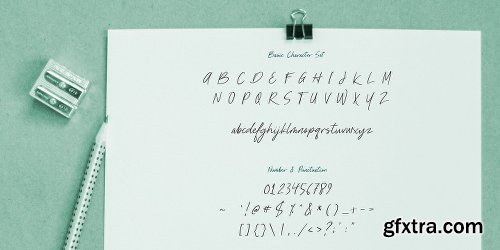 Basic Character Set
A B C D E F G H I J K L M
N O P Q R S T U V W X Y Z
abcdefghijklmnopqrstuvwxyz
Number & Punctuation
0123456789
~ ` ! @ # $ % ^ & * ( ) _ + - =
[ ] { } \ | . , / < > ? : ; ' "
gfxtra.com